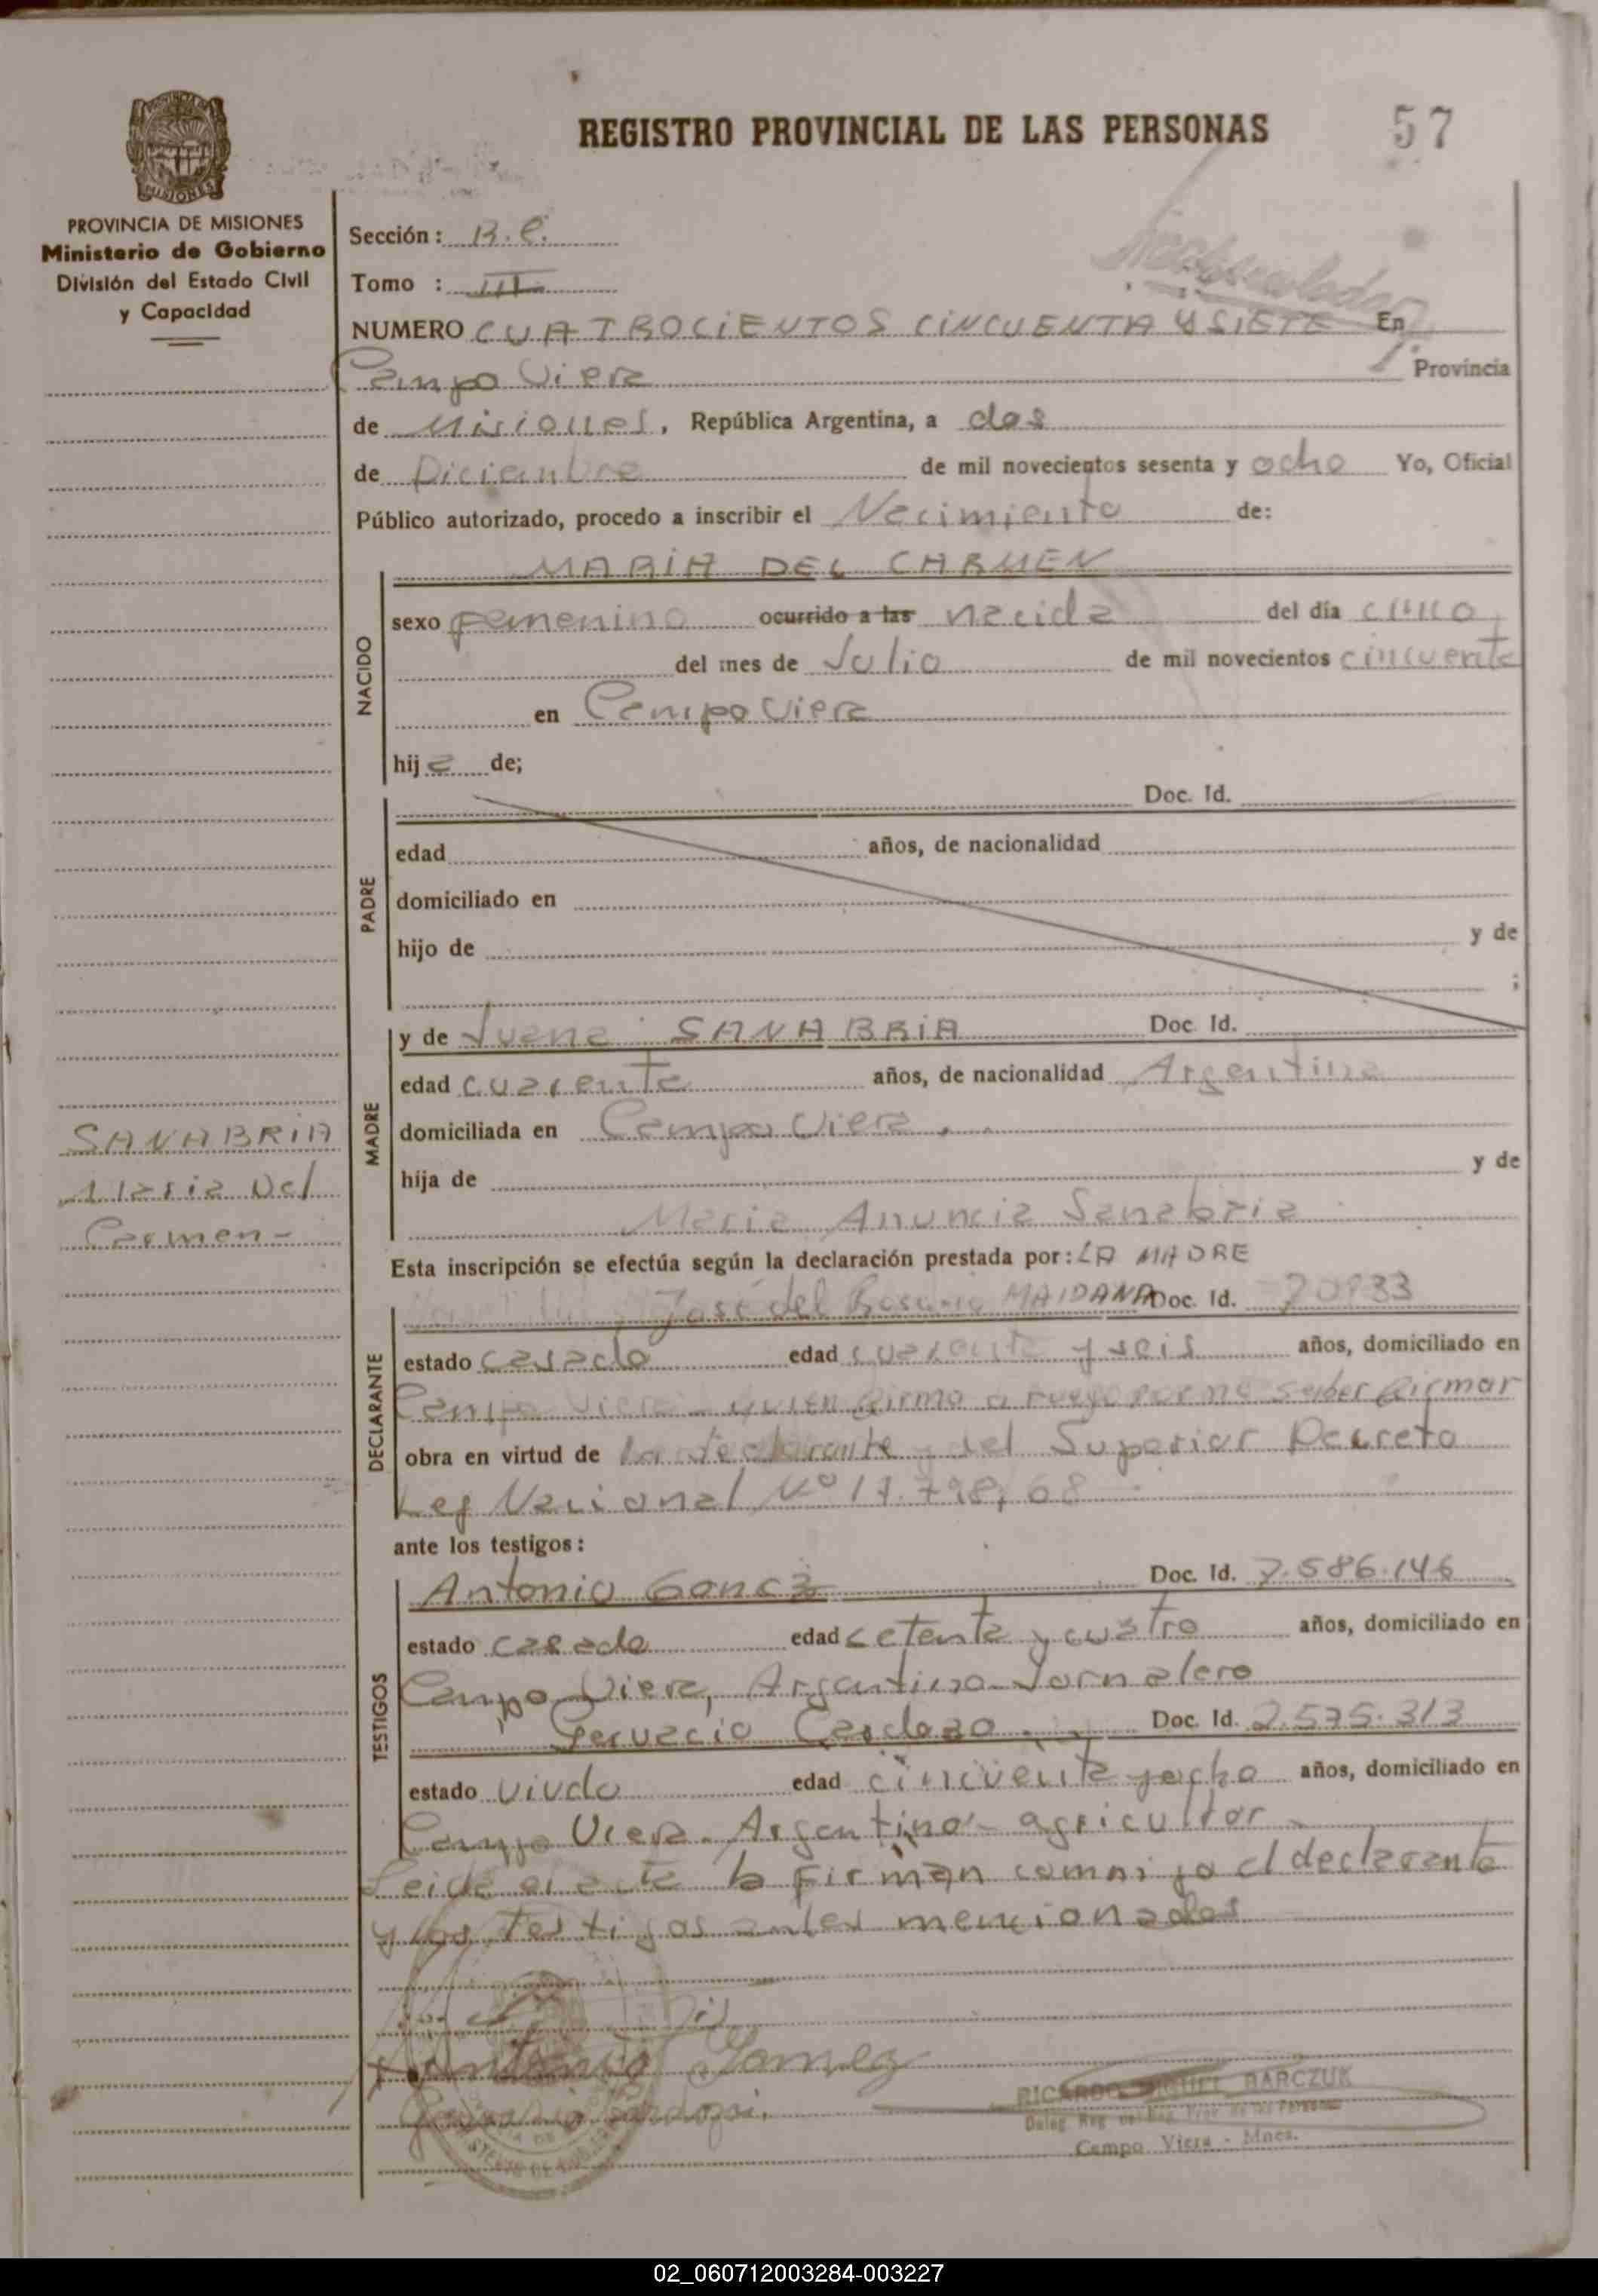 REGISTRO PROVINCIAL DE LAS PERSONAS
57
PROVINCIA DE MISIONES
Ministerio de Gobierno
División del Estado Civil
y Capacidad
Sección: B.C.
Tomo : III
NUMERO CUATROCIENTOS CINCUENTA Y SIETE En
Campo Viera Provincia
de Misiones, República Argentina, a dos
de Diciembre de mil novecientos sesenta y ocho Yo, Oficial
Público autorizado, procedo a inscribir el Nacimiento de:
MARIA DEL CARMEN
NACIDO
sexo femenino ocurrido a las nacida del día cinco
del mes de Julio de mil novecientos cincuenta
en Campo Viera
hija de;
PADRE
Doc. Id.
edad años, de nacionalidad
domiciliado en
hijo de y de
;
MADRE
y de Juana SANABRIA Doc. Id.
edad cuarenta años, de nacionalidad Argentina
domiciliada en Campo Viera
hija de y de
Maria Anuncia Sanabria
SANABRIA
Maria Del
Carmen-
Esta inscripción se efectúa según la declaración prestada por: LA MADRE
DECLARANTE
José del Rosario MAIDANA Doc. Id.
estado casado edad cuarenta y seis años, domiciliado en
Campo Viera - quien firmo a ruego por no saber firmar
obra en virtud de la declarante y del Superior Decreto
Ley Nacional Nº 17.798/68
ante los testigos:
TESTIGOS
Antonio Doc. Id. 7.586.146
estado casado edad cetenta y cuatro años, domiciliado en
Campo Viera, Argentino-Jornalero
Gervacio Cardozo Doc. Id. 2.575.313
estado viudo edad cincuenta y ocho años, domiciliado en
Campo Viera. Argentino- agricultor
Leida el acta la firman conmigo el declarante
y los testigos antes mencionados
Antonio Gomez
RICARDO MIGUEL BARCZUK
Deleg. Reg. del Reg. Prov. de las Personas
Campo Viera - Mnes.
02_060712003284-003227